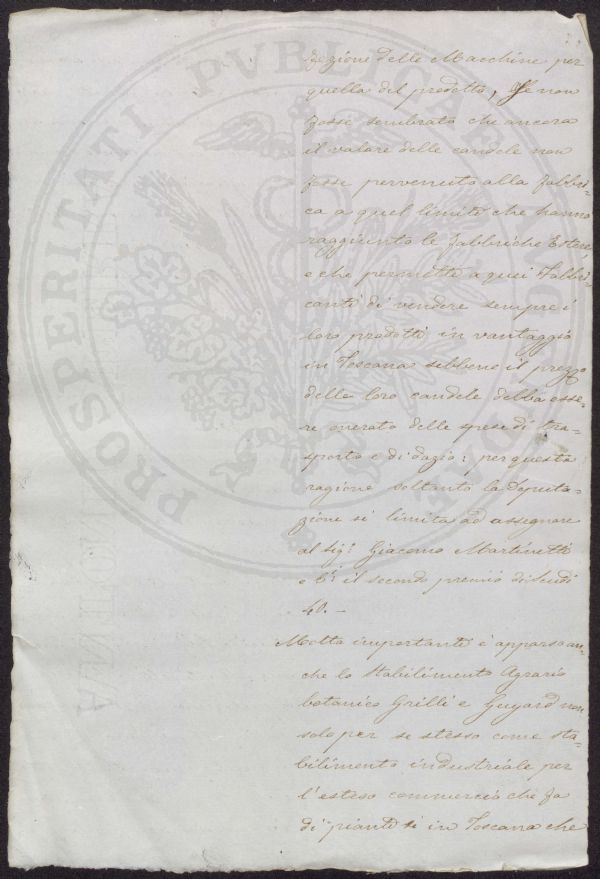 PROSPERITATI PVBLICAE AVGENDAE
fezione delle Macchine per
quella del prodotto, Se non
fosse sembrato che ancora
il valore delle candele non
fosse pervenuto alla fabbri-
ca a quel limite che hanno
raggiunto le fabbriche Estere,
e che permette a quei Fabbri-
canti di vendere sempre i
loro prodotti in vantaggio
in Toscana sebbene il prezzo
delle loro candele debba esse-
re onerato delle spese di tra-
sporto e di dazio: per questa
ragione soltanto la Deputa-
zione si limita ad assegnare
al Sigr. Giacomo Martinetti
e Ci. il secondo premio di Scudi
40. –
Molto importante è apparso an-
che lo Stabilimento Agrario
botanico Grilli e Guyard non
solo per se stesso come sta-
bilimento industriale per
l'esteso commercio che fa
di piante sì in Toscana che